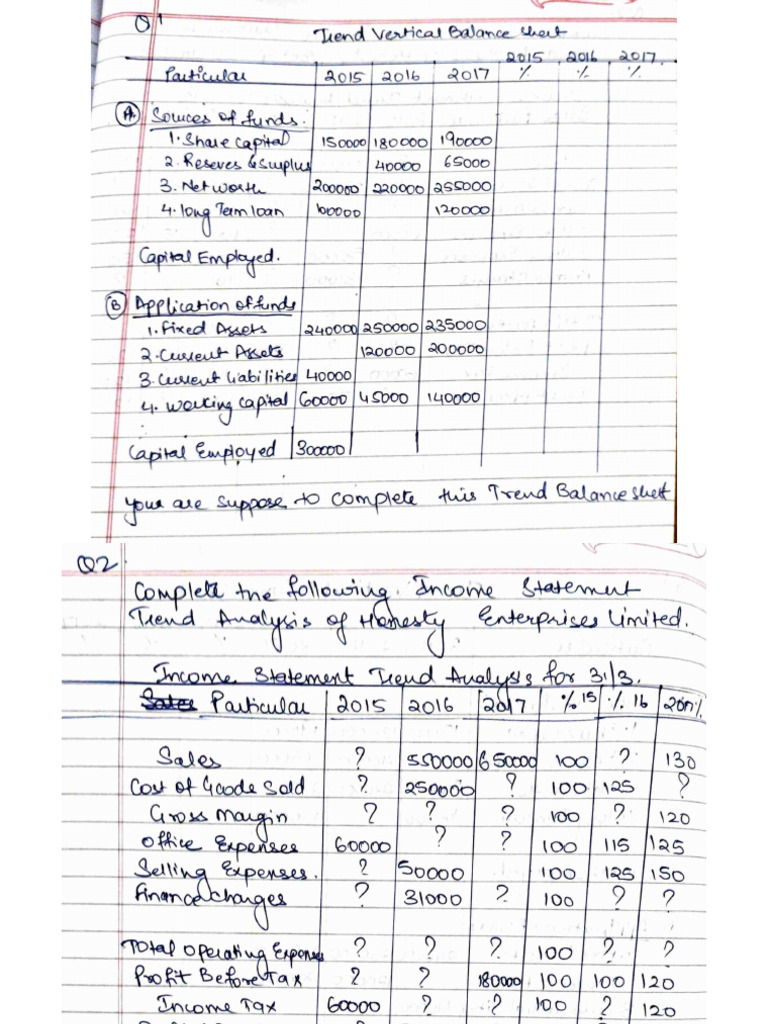 Q 1
Trend Vertical Balance Sheet
Particular 2015 2016 2017 2015 % 2016 % 2017 %
A. Sources of funds.
1. Share Capital 150000 180000 190000
2. Reseves & Surplus 40000 65000
3. Net worth 200000 220000 255000
4. long Term loan 100000 120000
Capital Employed.
B Application of funds
1. Fixed Assets 240000 250000 235000
2. Current Assets 120000 200000
3. Current Liabilities 40000
4. Working Capital 60000 45000 140000
Capital Employed 300000
Your are suppose to complete this Trend Balance sheet
Q2.
Complete the following Income Statement
Trend Analysis of Honesty Enterprises Limited.
Income Statement Trend Analysis for 31/3.
Sales Particular 2015 2016 2017 % 15 % 16 2017%
Sales ? 550000 650000 100 ? 130
Cost of Goods Sold ? 250000 ? 100 125 ?
Gross Margin ? ? ? 100 ? 120
Office Expenses 60000 ? ? 100 115 125
Selling Expenses. ? 50000 100 125 150
Finance charges ? 31000 ? 100 ? ?
Total Operating Expenses ? ? ? 100 ? ?
Profit Before Tax ? ? 180000 100 100 120
Income Tax 60000 ? ? 100 ? 120